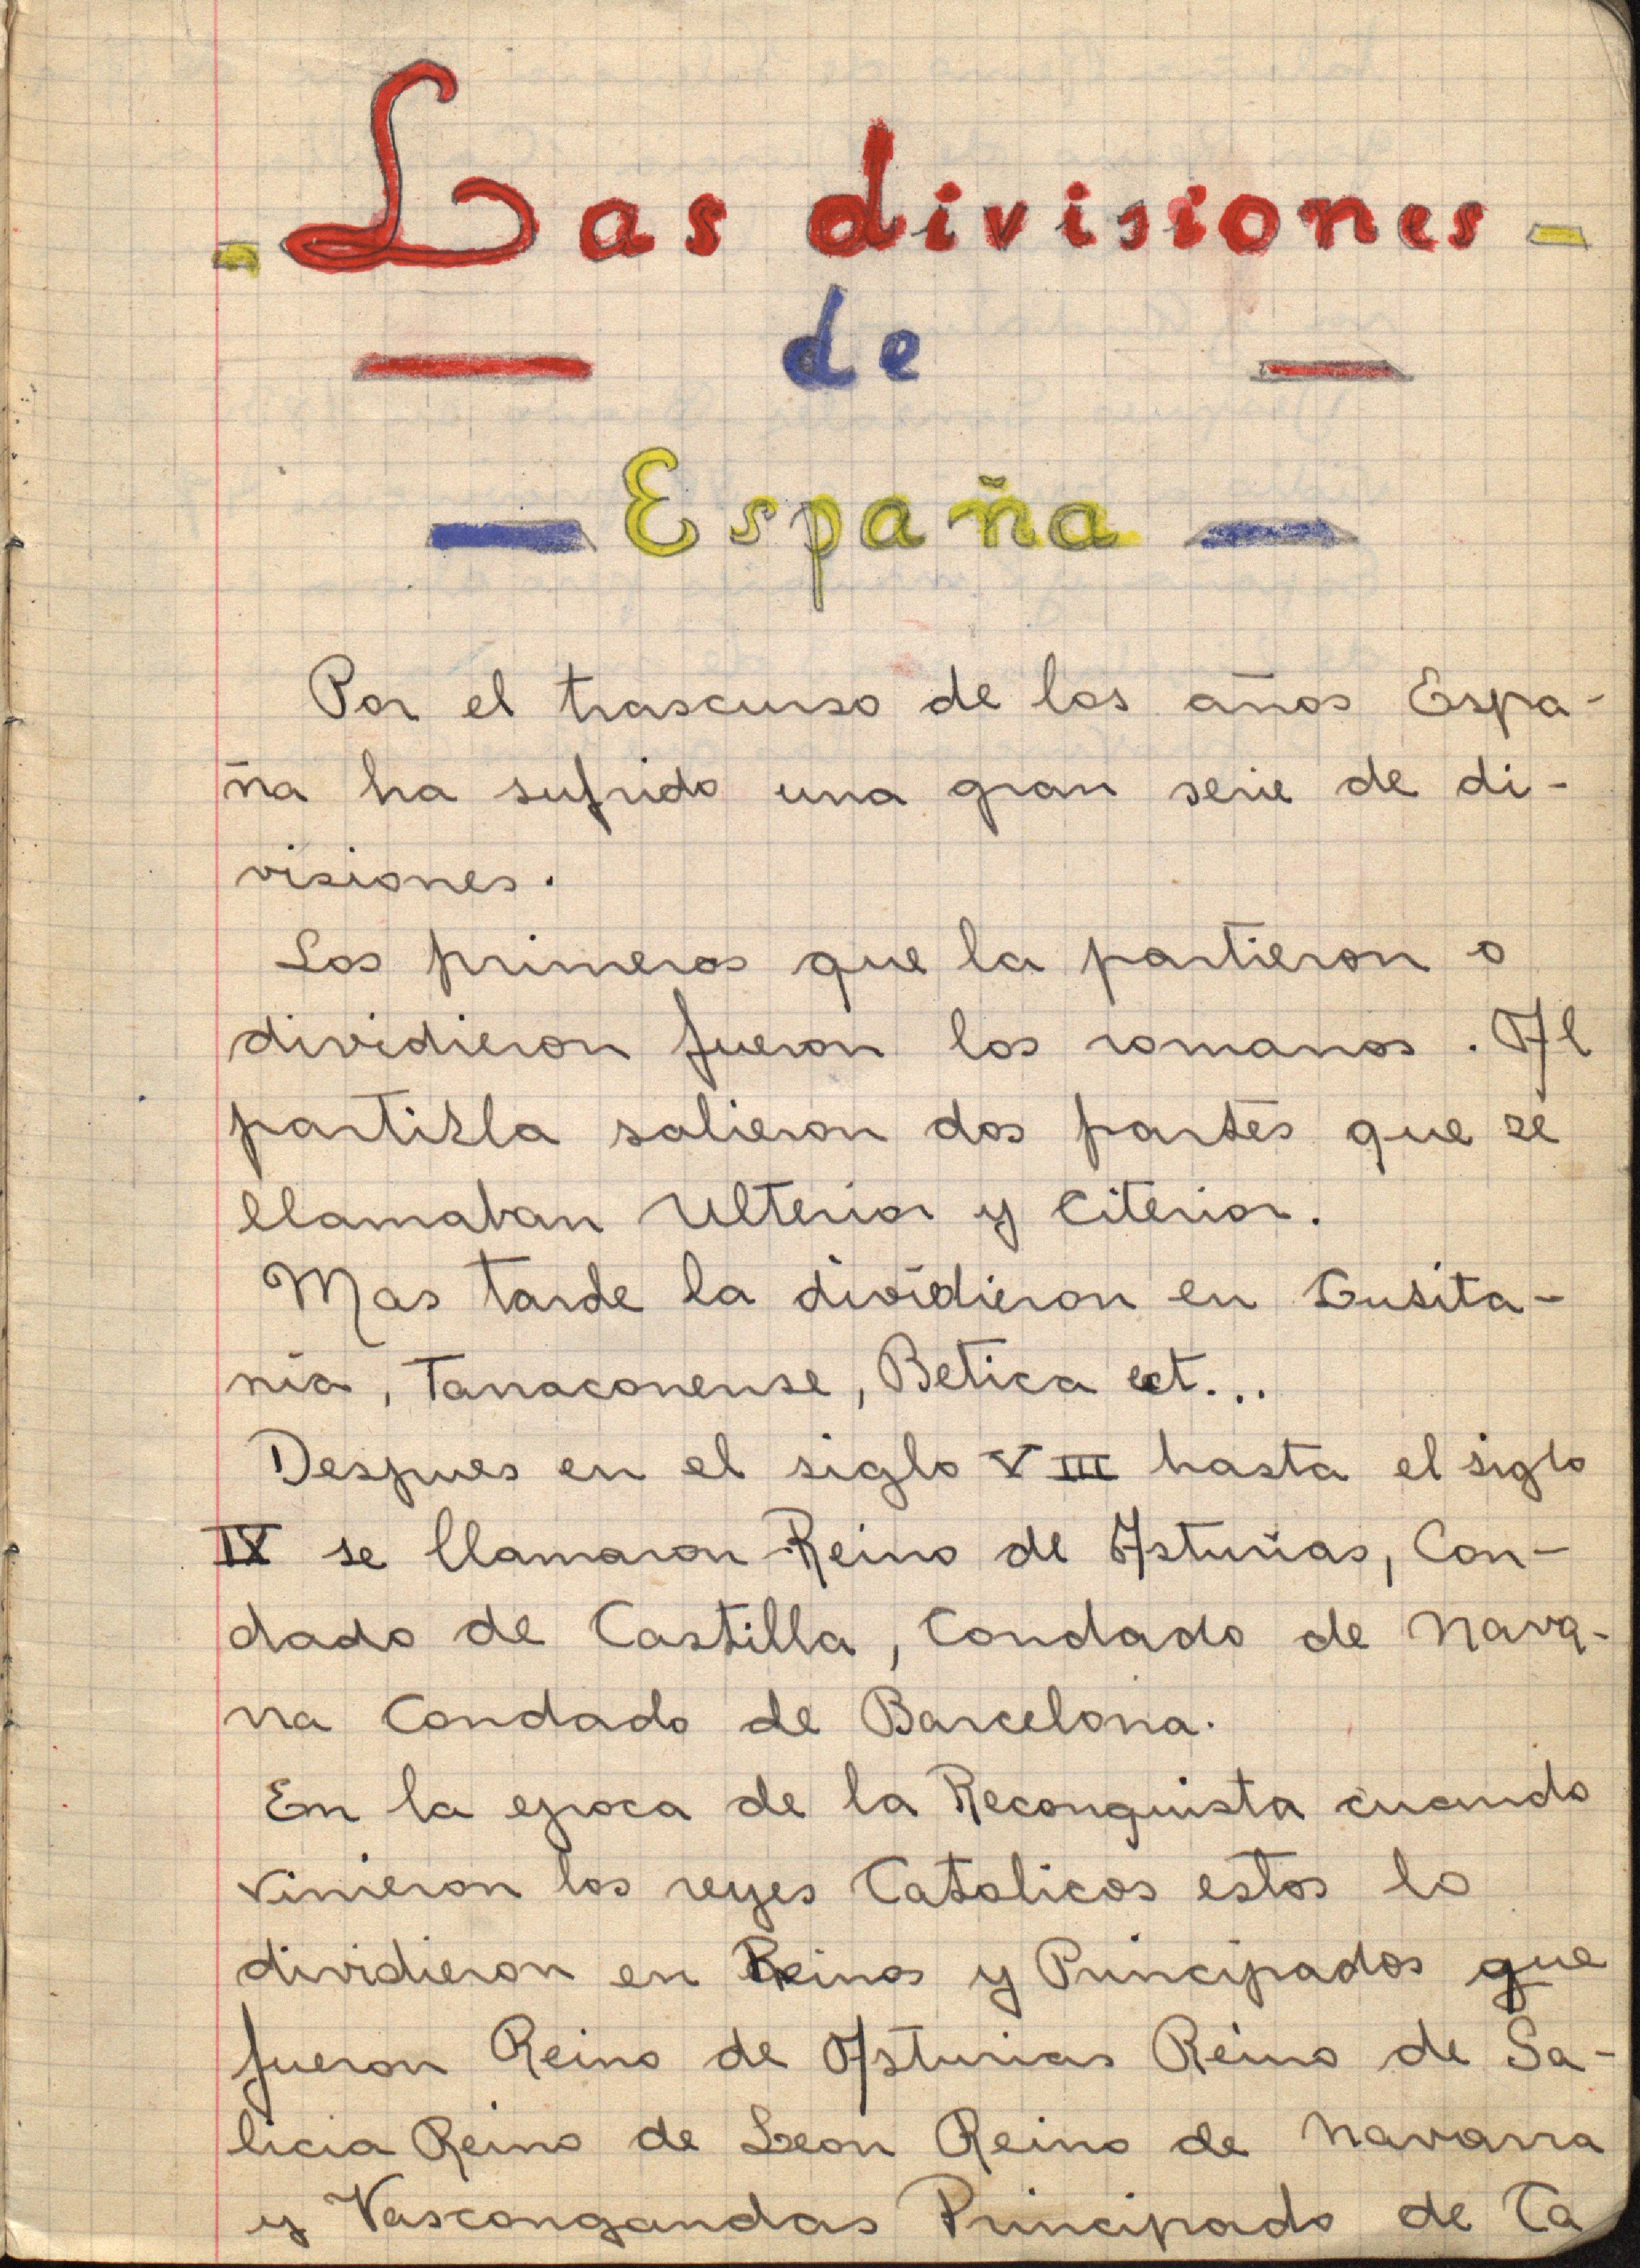 Las divisiones
de
España
Por el trascurso de los años Espa-
ña ha sufrido una gran serie de di-
visiones.
Los primeros que la partieron o
dividieron fueron los romanos. Al
partirla salieron dos partes que se
llamaban Ulterior y Citerior.
Mas tarde la dividieron en Lusita-
nia, Tarraconense, Betica ect...
Despues en el siglo VIII hasta el siglo
IX se llamaron Reino de Asturias, Con-
dado de Castilla, Condado de Nava-
rra Condado de Barcelona.
En la epoca de la Reconquista cuando
vinieron los reyes Catolicos estos lo
dividieron en Reinos y Principados que
fueron Reino de Asturias Reino de Ga-
licia Reino de Leon Reino de Navarra
y Vascongandas Principado de Ca